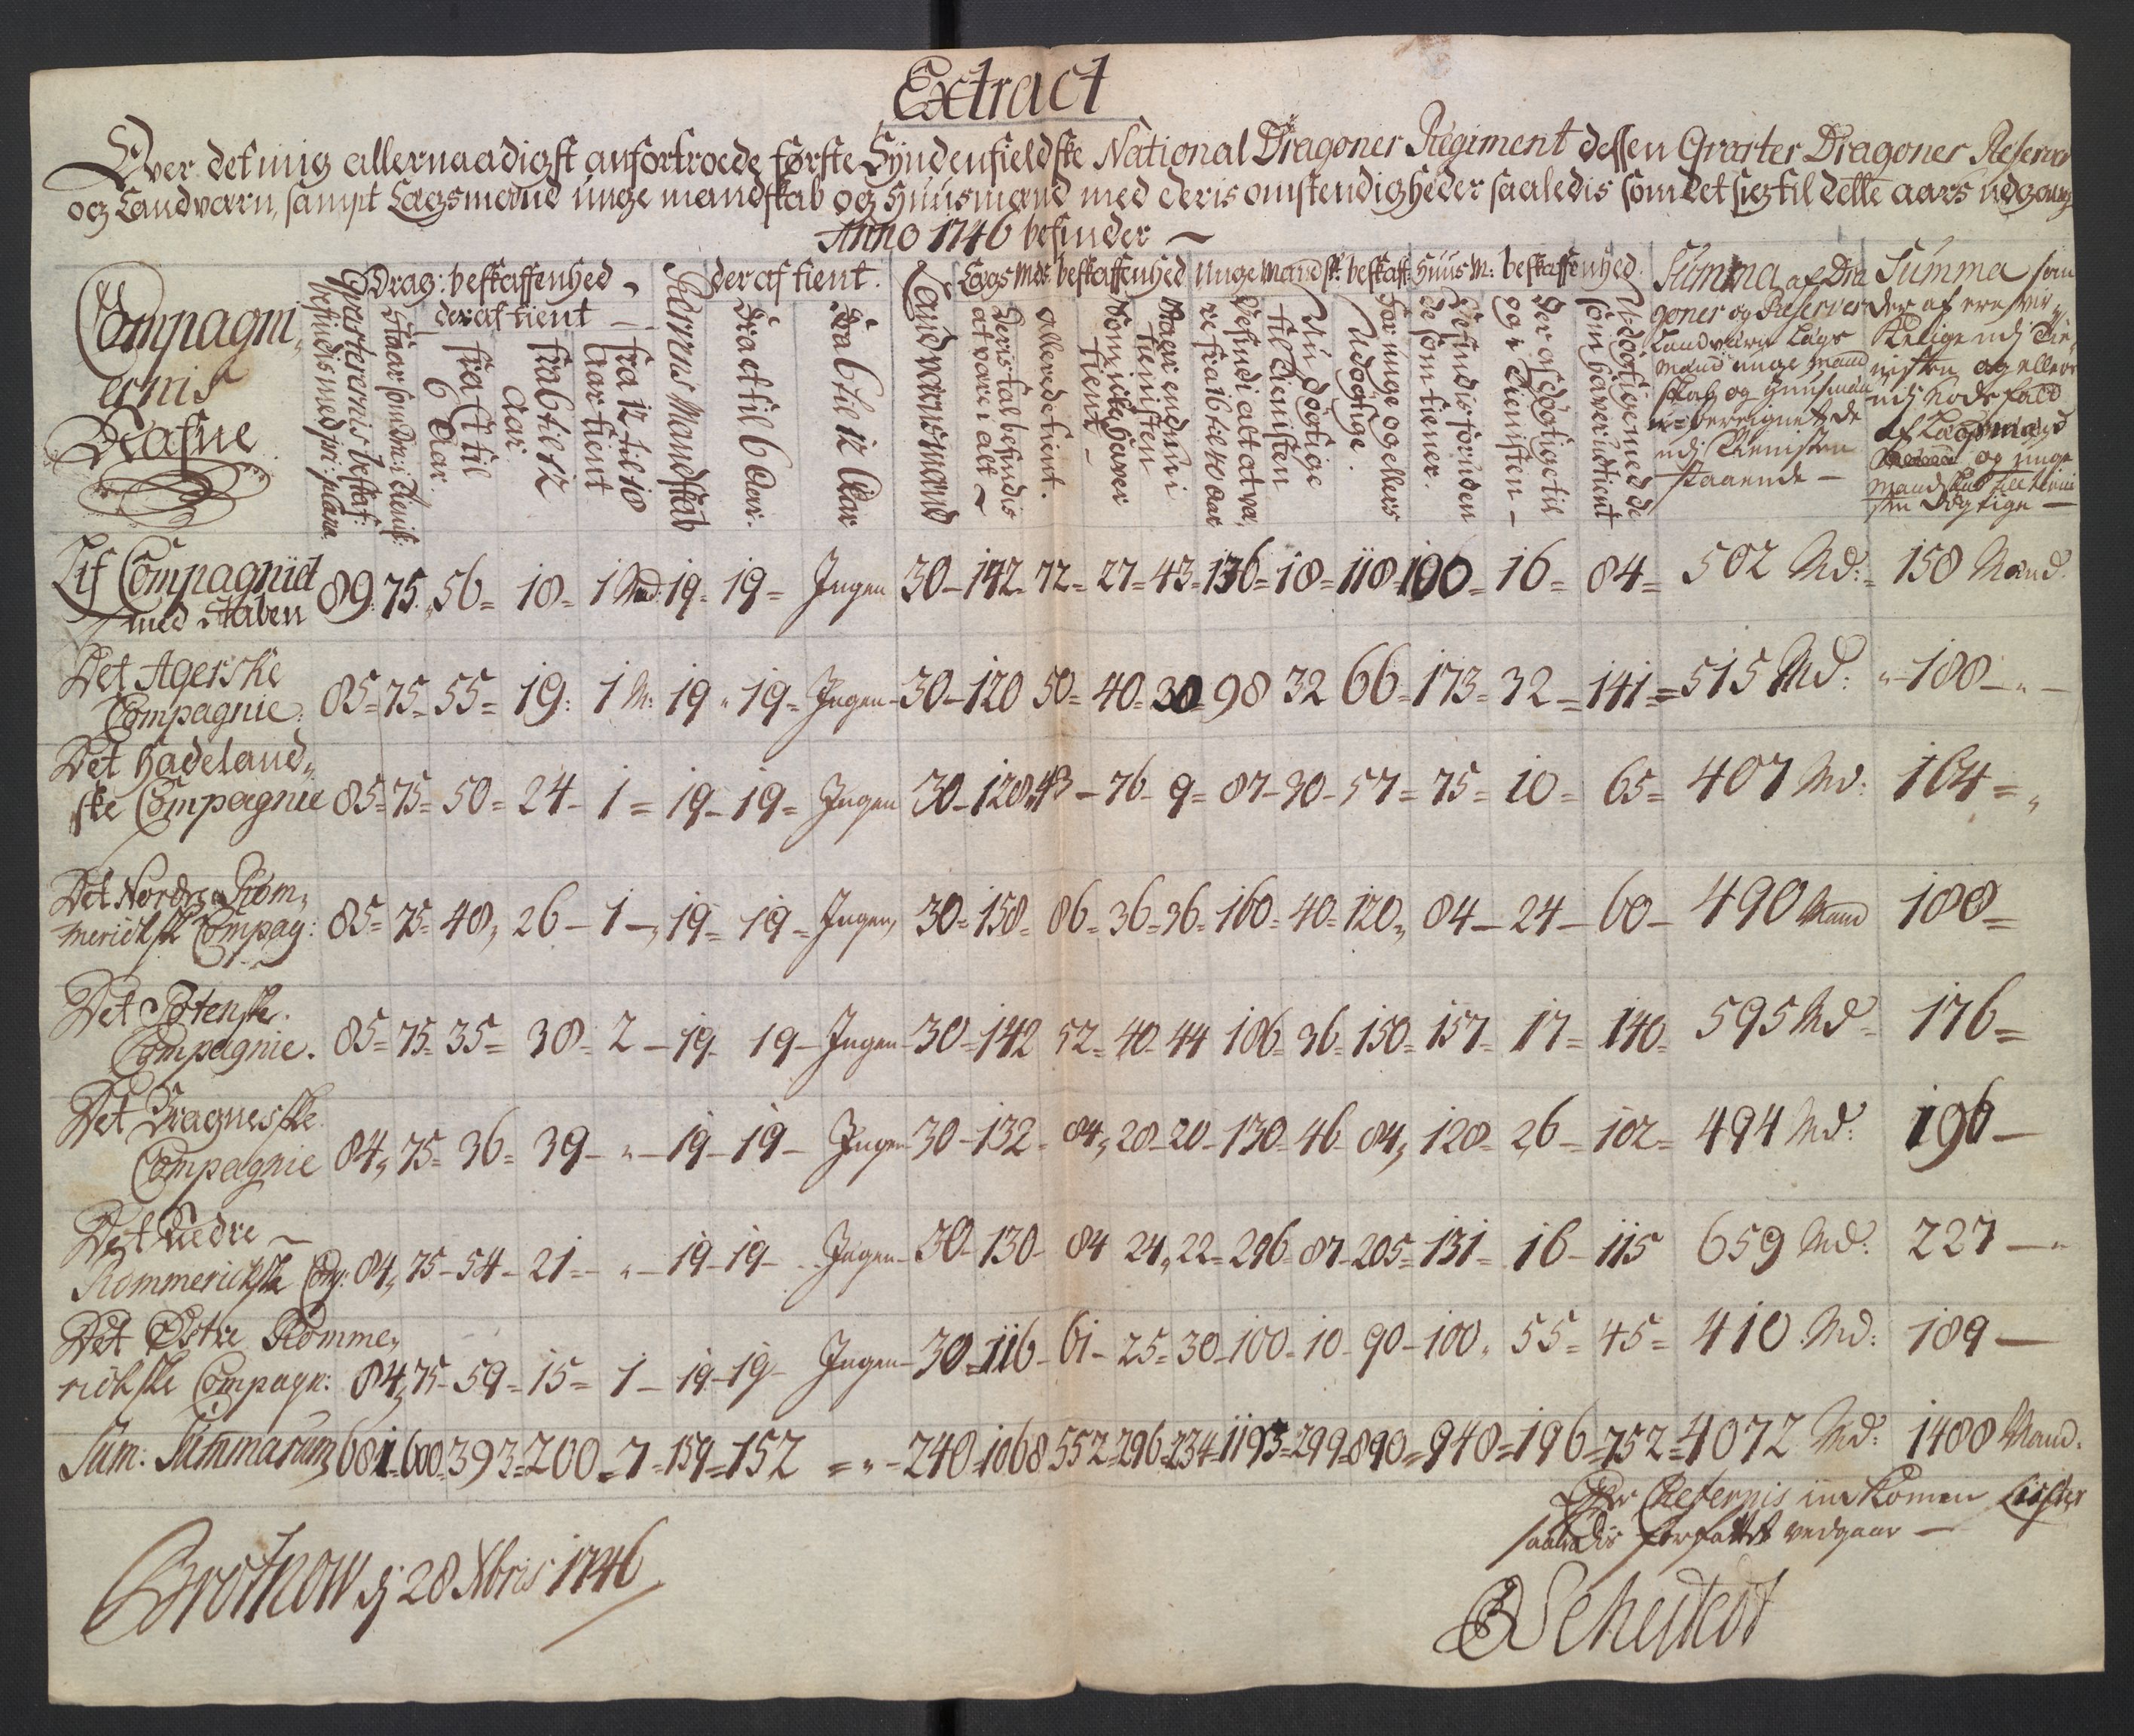 Extract
Over det mig allernaadigst anfortroede første Syndenfieldske National Dragoner Regiment dessen Qvarter Dragoner Reserver
og Landværn, sampt Lægsmænd unge mandskab og Huusmænd med deris omstendigheder saaledis som det sig til dette aars udgang
Anno 1746 befinder
Compagni
ernis
Nafne
Qvarterernis beskaf:
befindis med pri: plana
Drag: beskaffenhed
Staar som Drag: i Tienist:
der af tient
fra 1 til
6 Aar
fra 6 til 12
Aar
fra 12 til 18
Aar tient
Reserves Mandskab
der af tient.
Fra et til 6 Aar.
Fra 6 til 12 Aar
Landværnsmænd
Lægs Mds: beskaffenhed
Deris tal befindis
at være i alt
allerede tient.
Som icke haver
tient
Staar endnu i
tienisten
Unge Mandsk: beskaff:
Befindis i alt at væ,
re fra 16 til 40 aar
til Tienisten
Nu døgtige
For unge og ellers
Udøgtige.
Huus M: beskaffenhed.
Befindis foruden
de som tiener.
Der af døgtige til
og i Tienisten
Udøgtige med de
som haver udtient
Summa af Dra
goner og Reserver
Landværn Lægs
mænd unge mand
skab og Huusmænd
udj Tienisten
staaende
Summa som
der af ere vir
kelige udj Tie,
nisten og ellers
udj Nødsfald
af Lægsmænd
og unge
Mandskab till tieni
sten døgtige
Lif Compagniet
med Staben 89. 75. 56 = 18 = 1 Md: 19 = 19 = Ingen 30 - 142 - 72 = 27 = 43 = 136 = 18 = 118 = 100 = 16 = 84 = 502 Md: = 158 Mand.
Det Agerske
Compagnie. 85 = 75 = 55 = 19 : 1 M: 19 " 19 = Ingen - 30 - 120 50 = 40 = 30 = 98 32 66 = 173 = 32 = 141 = 515 Md: " 188 - " -
Det Hadeland,
ske Compagnie 85 = 75 = 50 = 24 - 1 = 19 - 19 = Ingen 30 - 128 = 43 - 76 - 9 = 87 - 30 - 57 = 75 = 10 = 65 = 407 Md: 164 = "
Det Nordre Rom,
merickske Compag: 85 = 75 = 48, 26 - 1 -, 19 = 19 = Ingen, 30 = 158 = 86 = 36 = 36 = 160 = 40 = 120, 84 - 24 - 60 - 490 Mand 188 =
Det Totenske
Compagnie. 85 = 75 = 35 = 38 = 2 - 19 - 19 - Ingen - 30 = 142 52 = 40 = 44 186 = 36 = 150 = 157 = 17 = 140 = 595 Md = 176 =
Det Vragneske
Compagnie 84, 75 = 36 = 39 - " - 19 - 19 - Ingen 30 - 132 = 84, 28 - 20 - 130 = 46 84, 128 = 26 = 102 = 494 Md: 196 -
Det Nedre
Rommerickske Comp: 84, 75 - 54 - 21 = " - 19 - 19 - Ingen - 30 - 130 - 84 24, 22 = 296 = 87 - 205 = 131 = 16 - 115 659 Md: 227 - "
Det Østre Romme,
rickske Compagn: 84, 75 - 59 = 15 = 1 - 19 - 19 - Ingen - 30 = 116 - 61 - 25 = 30 - 100 = 10 - 90 - 100, 55 = 45 = 410 Md: 189 -
Sum: Summarum 681 - 600 = 393 = 200 = 7 = 159 = 152 = " - 240 = 1068 552 = 296 = 234 = 1193 = 299 = 890 = 948 = 196 = 752 = 4072 Md: 1488 Mand.
Efter Chefernis ind komen Lister
saaledis forfattet vedgaar
Brotnow dj 28 Xbris 1746